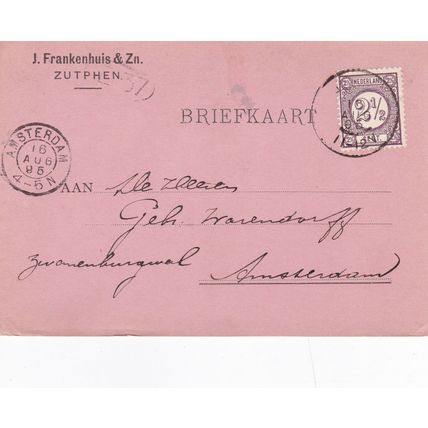 J. Frankenhuis & Zn.
ZUTPHEN.
NEDERLAND
2½
BRIEFKAART
AMSTERDAM
16
AUG
95
4-5N
AAN de Heeren
Geb. Warendorff
Zwanenburgwal
Amsterdam